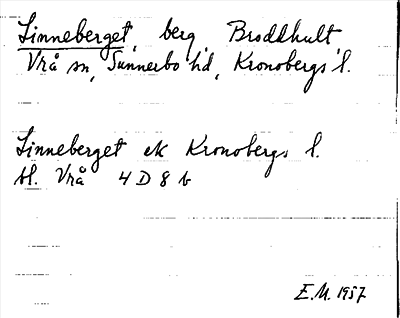 Linneberget, berg, Broddhult,
Vrå sn, Sunnerbo hd, Kronobergs l.
Linneberget ek Kronobergs l.
bl. Vrå 4 D 8 b
E.M. 1957